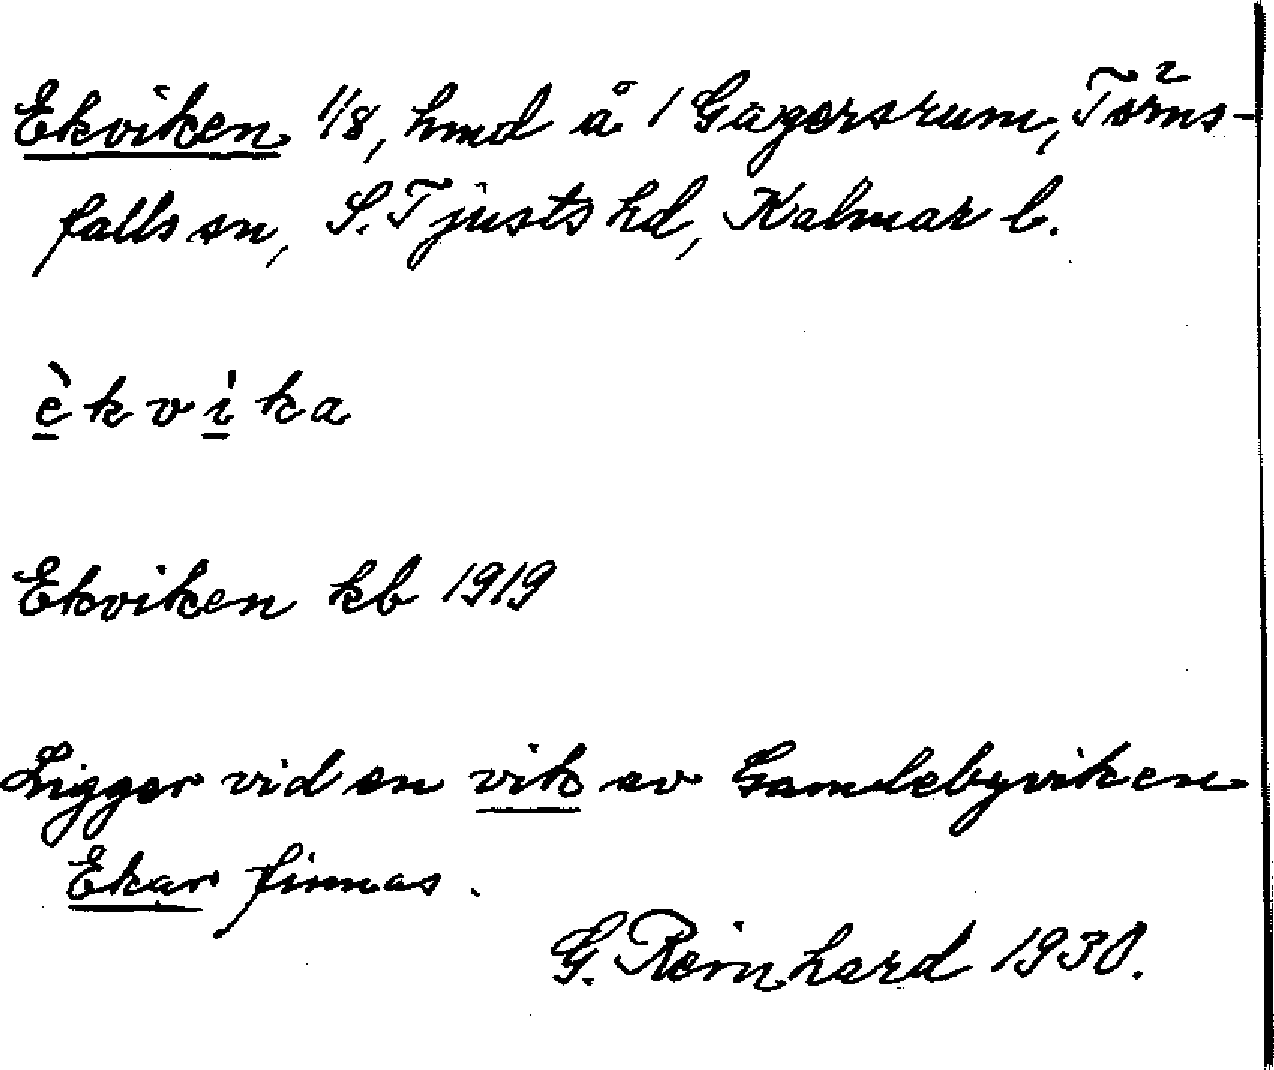 Ekviken 1/8, hmd å 1 Gagersrum, Törns-
falls sn, S. Tjusts hd, Kalmar l.
èkvika
Ekviken kb 1919
Ligger vid en vik av Gamlebyviken
Ekar finnas.
G. Reinhard 1930.